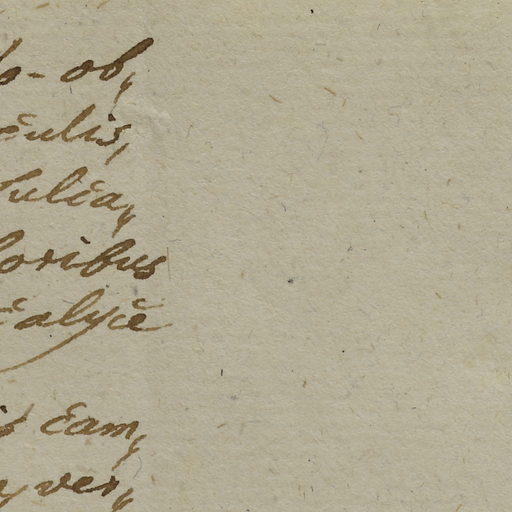 o- ob,
culis,
sulca,
loribus
calyce
cam,
ver,